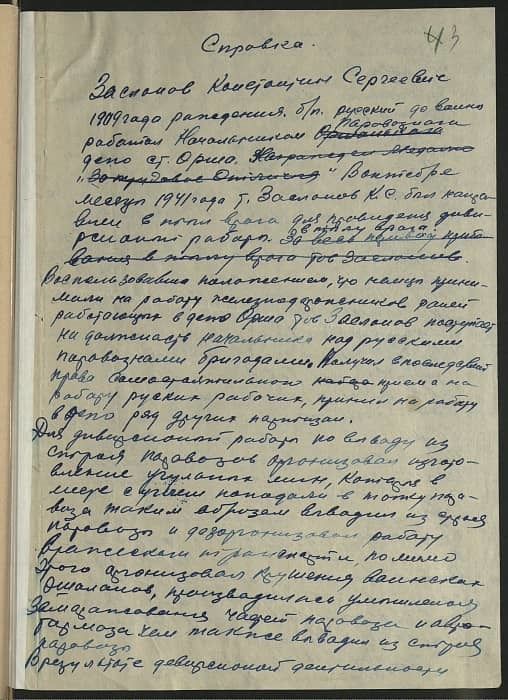 43
Справка.
Заслонов Константин Сергеевич
1909 года рождения. б/п. русский до войны
работал Начальником Орша паровозного
депо ст. Орша. Награжден Медалью
"За трудовое Отличие" В октябре
месяце 1941 года т. Заслонов К.С. был направ
лен в тыл врага для проведения дивер
сионной работы. в тылу врага. За весь период пребы
вания в тылу врага тов Заслонов.
Воспользовавшись положением, что немцы прини-
мали на работу железнодорожников ранее
работающих в депо Орша тов Заслонов поступает
на должность начальника над русскими
паровозными бригадами. Получил в последствии
права самостоятельного приема на
работу руских рабочих, принял на работу
в депо ряд других партизан.
Для диверсионной работы по выводу из
строя паровозов организовал изгото-
вление угульных мин, которые в
месте с углем попадали в топку паро-
воза таким образом выводил из строя
паровозы и дезорганизовал работу
вражеского транспорта, помимо
этого организовал крушения воинских
эшелонов, производилась умышленая
замораживания частей паровоза и авто-
тормоза чем также выводил из строя
паровозы
В результате диверсионной деятельности